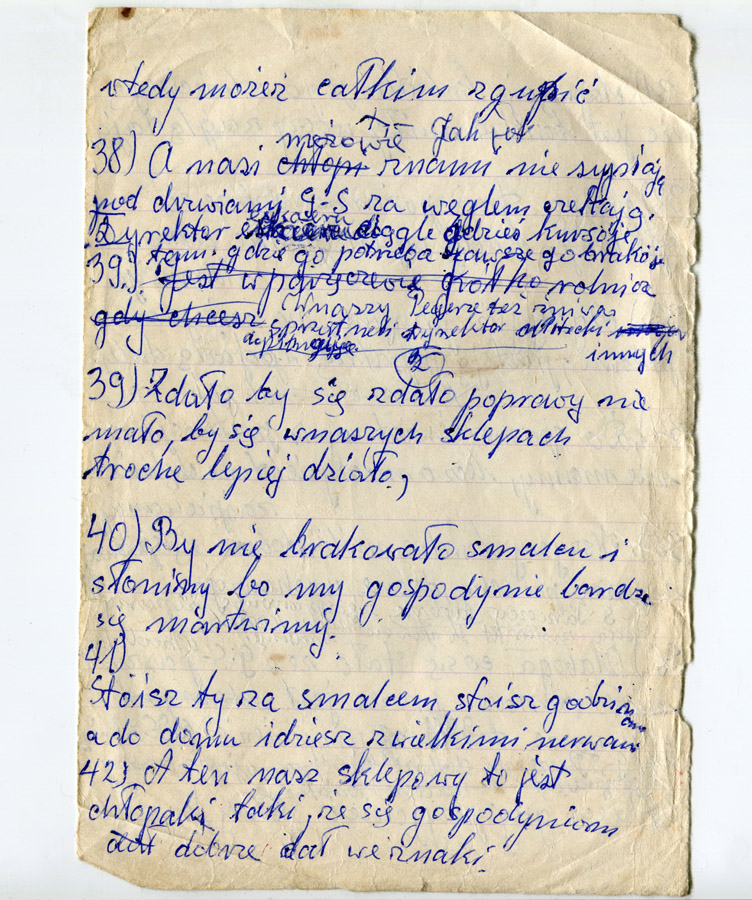 wtedy możesz całkim zgubić
mężowie Jak już
38) A nasi chłopi znami nie sypiają
pod drzwiami G-S za węglem czekają.
Dyrektor ciągle gdzieś kursuje
tam gdzie go potrzeba zawsze go brakuje
39) jest w powrzecowie kółko rolnicze
gdy chcesz Wnaszy Pegerze też
dyrektor
innych
2
39) Zdało by się zdało poprawy nie
mało, by się wnaszych sklepach
troche lepiej działo,
40) By nie brakowało smalcu i
słoniny bo my gospodynie bardzo
się martwimy.
41)
Stoisz ty za smalcem stoisz godzinami
a do domu idziesz zwielkimi nerwami
42) A ten nasz sklepowy to jest
chłopak taki, że się gospodyniom
dobrze dał we znaki.